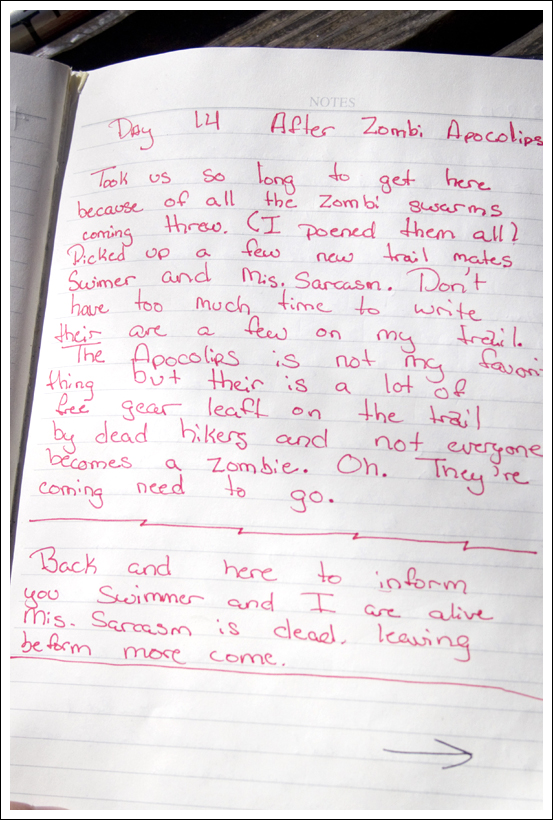 NOTES
Day 14 After Zombi Apocolips
Took us so long to get here
because of all the zombi swarms
coming threw. (I poened them all)
Picked up a few new trail mates
Swimer and Mis. Sarcasm. Don't
have too much time to write
their are a few on my trail.
The Apocolips is not my favori
thing but their is a lot of
free gear leaft on the trail
by dead hikers and not everyone
becomes a zombie. Oh. They're
coming need to go.
Back and here to inform
you Swimmer and I are alive
Mis. Sarcasm is dead. leaving
beform more come.